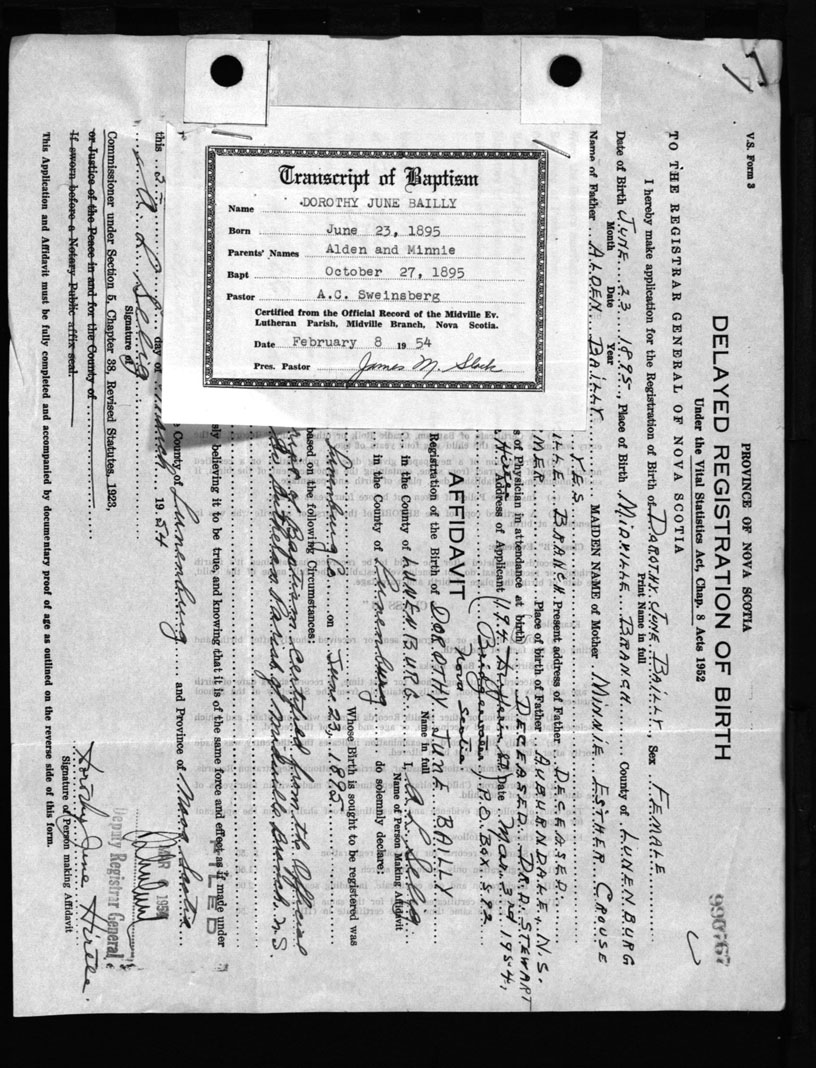 Transcript of Baptism
Name DOROTHY JUNE BAILLY
Born June 23, 1895
Parents' Names Alden and Minnie
Bapt October 27, 1895
Pastor A.C. Sweinsberg
Certified from the Official Record of the Midville Ev.
Lutheran Parish, Midville Branch, Nova Scotia.
Date February 8 19 54
Pres. Pastor James M. Slack
V.S. Form 3
PROVINCE OF NOVA SCOTIA
990767
DELAYED REGISTRATION OF BIRTH
Under the Vital Statistics Act, Chap. 8 Acts 1952
TO THE REGISTRAR GENERAL OF NOVA SCOTIA
I hereby make application for the Registration of Birth of DOROTHY JUNE BAILLY, Sex FEMALE
Print Name in full
Date of Birth JUNE 23 1895, Place of Birth MIDVILLE BRANCH County of LUNENBURG
Month Date Year
Name of Father ALDEN BAILLY MAIDEN NAME of Mother MINNIE ESTHER CROUSE
YES
BRANCH Present address of Father DECEASED
Place of birth of Father AUBURNDALE, N.S.
of Physician in attendance at birth DECEASED DR. D. STEWART
Address of Applicant 194 St. Date Mar. 3rd 1954,
(Bridgewater) P.O. BOX 582
Nova Scotia
AFFIDAVIT
Registration of the Birth of DOROTHY JUNE BAILLY
Name in full
in the County of LUNENBURG I, A L Selig
Name of Person Making Affidavit
in the County of Lunenburg do solemnly declare:
Whose Birth is sought to be registered was
Lunenburg Co on June 23, 1895
based on the following Circumstances:
of Baptism Certified from the Official
Lutheran Parish of Branch N.S.
sly believing it to be true, and knowing that it is of the same force and effect as if made under
FILED
County of Lunenburg and Province of Nova Scotia
this day of March 1954
MAR 1954
A L Selig
Signature of
Deputy Registrar General
Commissioner under Section 5, Chapter 38, Revised Statutes, 1923,
or Justice of the Peace in and for the County of
If sworn before a Notary Public affix seal.
Dorothy June Hirtle.
Signature of Person making Affidavit
This Application and Affidavit must be fully completed and accompanied by documentary proof of age as outlined on the reverse side of this form.